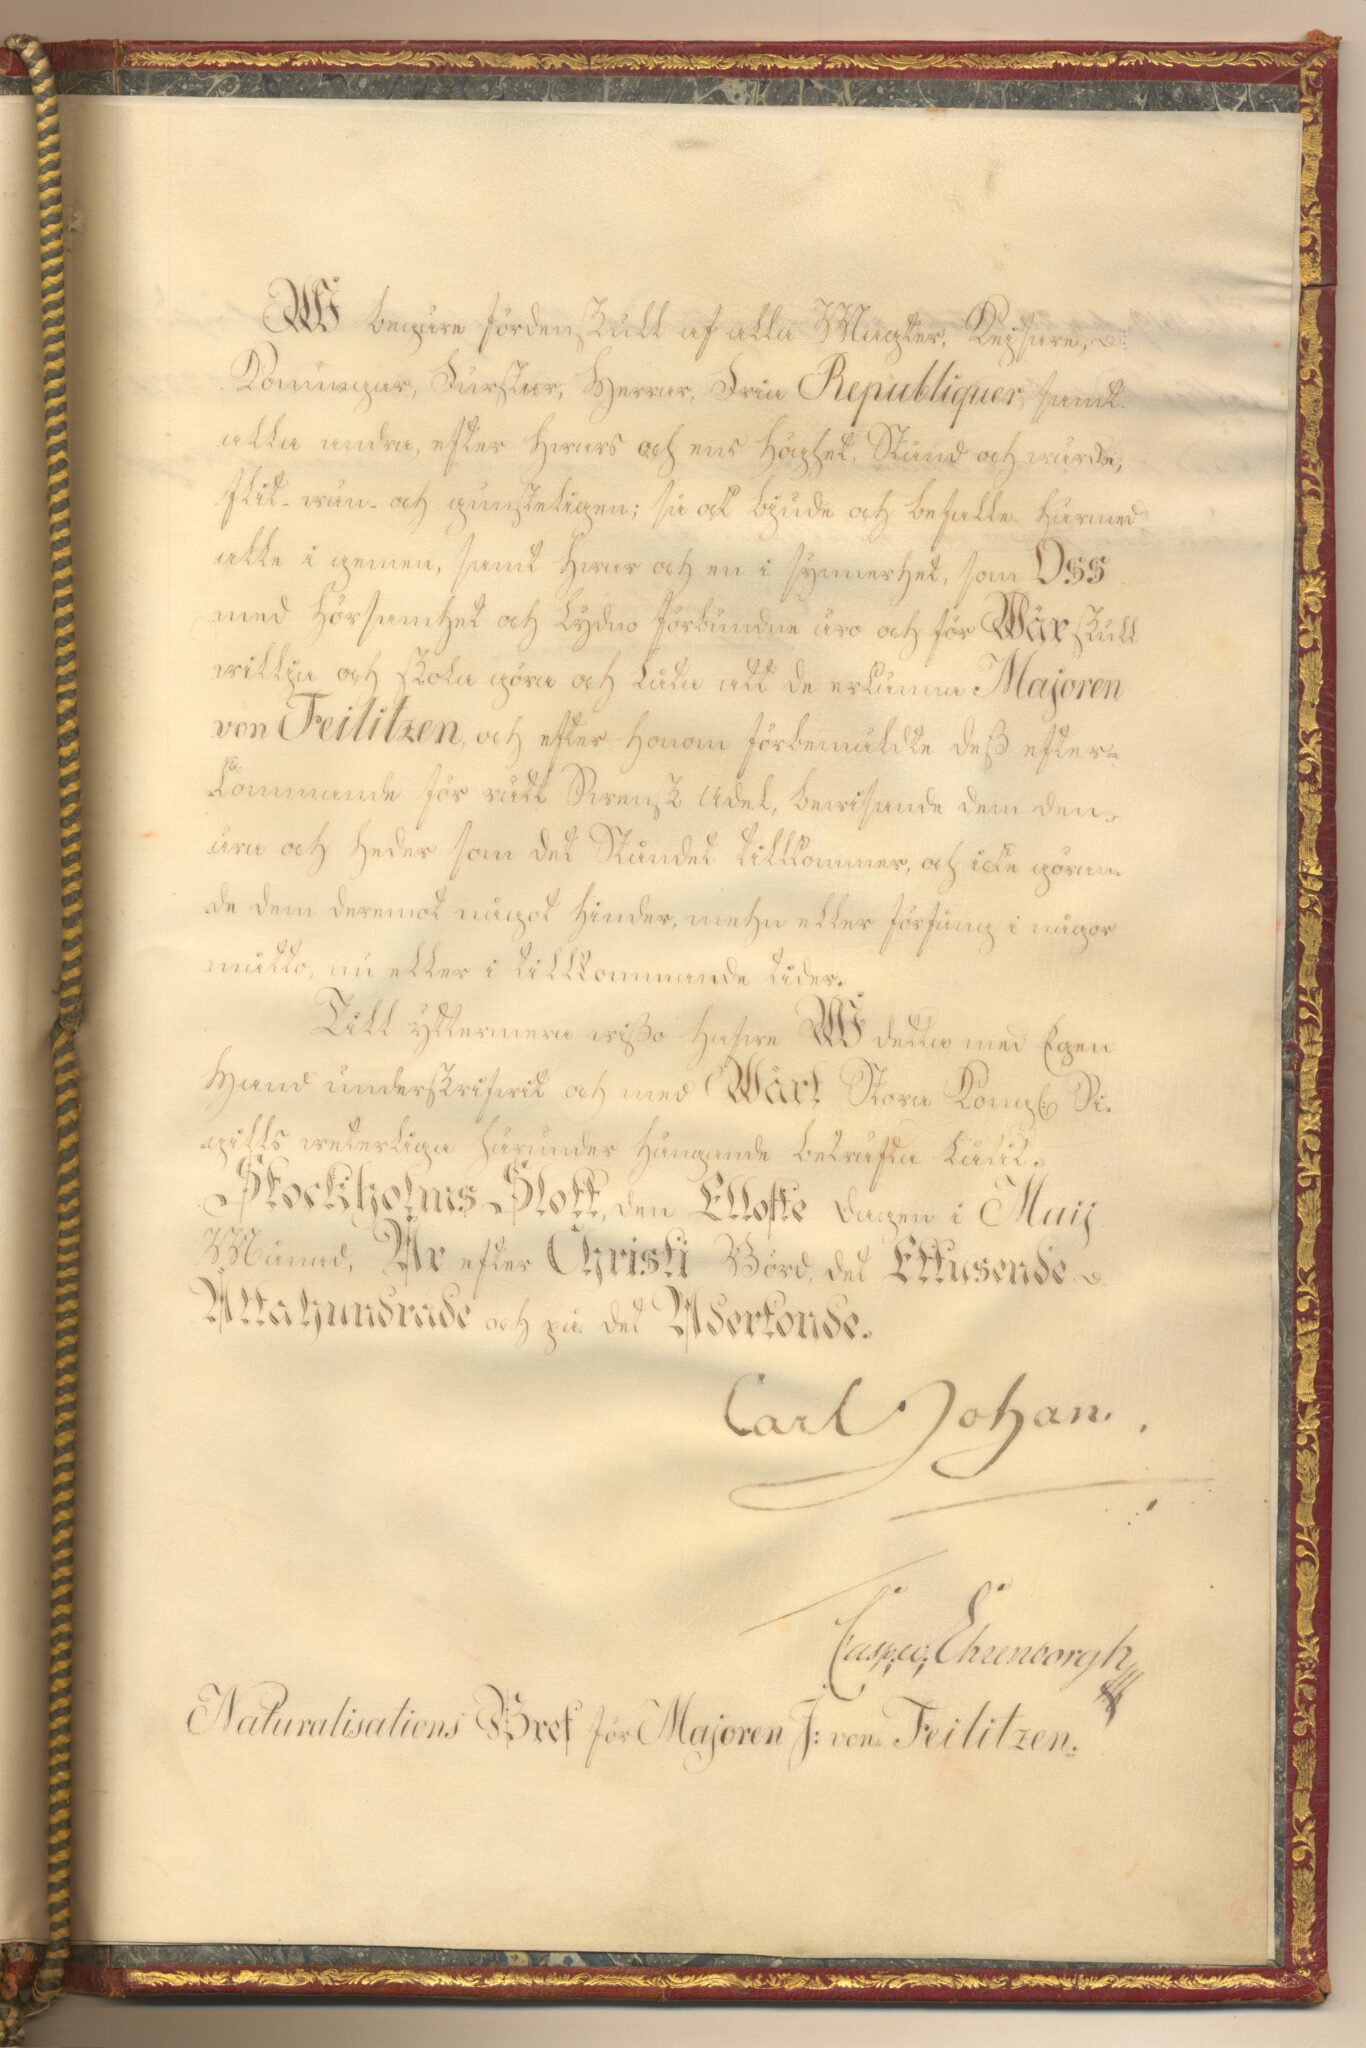 Wi begäre fördenskull af alla Magter, Keysare,
Konungar, Furstar, Herrar, Fria Republiquer, samt
alla andra, efter hwars och ens Höghet, Stånd och wärde,
flit- wän- och gunsteligen; så ock bjude och befalle härmed
alle i gemen, samt hwar och en i synnerhet, som Oss
med Hörsamhet och Lydno förbundne äro och för Wår skull
willja och skola göra och låta att de erkänna Majoren
von Feilitzen, och efter honom förbemäldte deß efter=
kommande för rätt Swensk Adel, bewisande dem den
ära och heder som det Ståndet tillkommer, och icke göran-
de dem deremot något hinder, mehn eller förfång i någor
måtto, nu eller i tillkommande tider.
Till yttermera wißo hafwe Wi detta med Egen
Hand underskrifwit och med Wårt Stora Kongl: Si-
gills weterliga härunder hängande bekräfta låtit.
Stockholms Slott, den Ellofte dagen i Maij
Månad, År efter Christi Börd, det Ettusende
Åttahundrade och på det Adertonde.
Carl Johan.
Casp: w: Ehrenborgh
Naturalisations Bref för Majoren J: von Feilitzen.